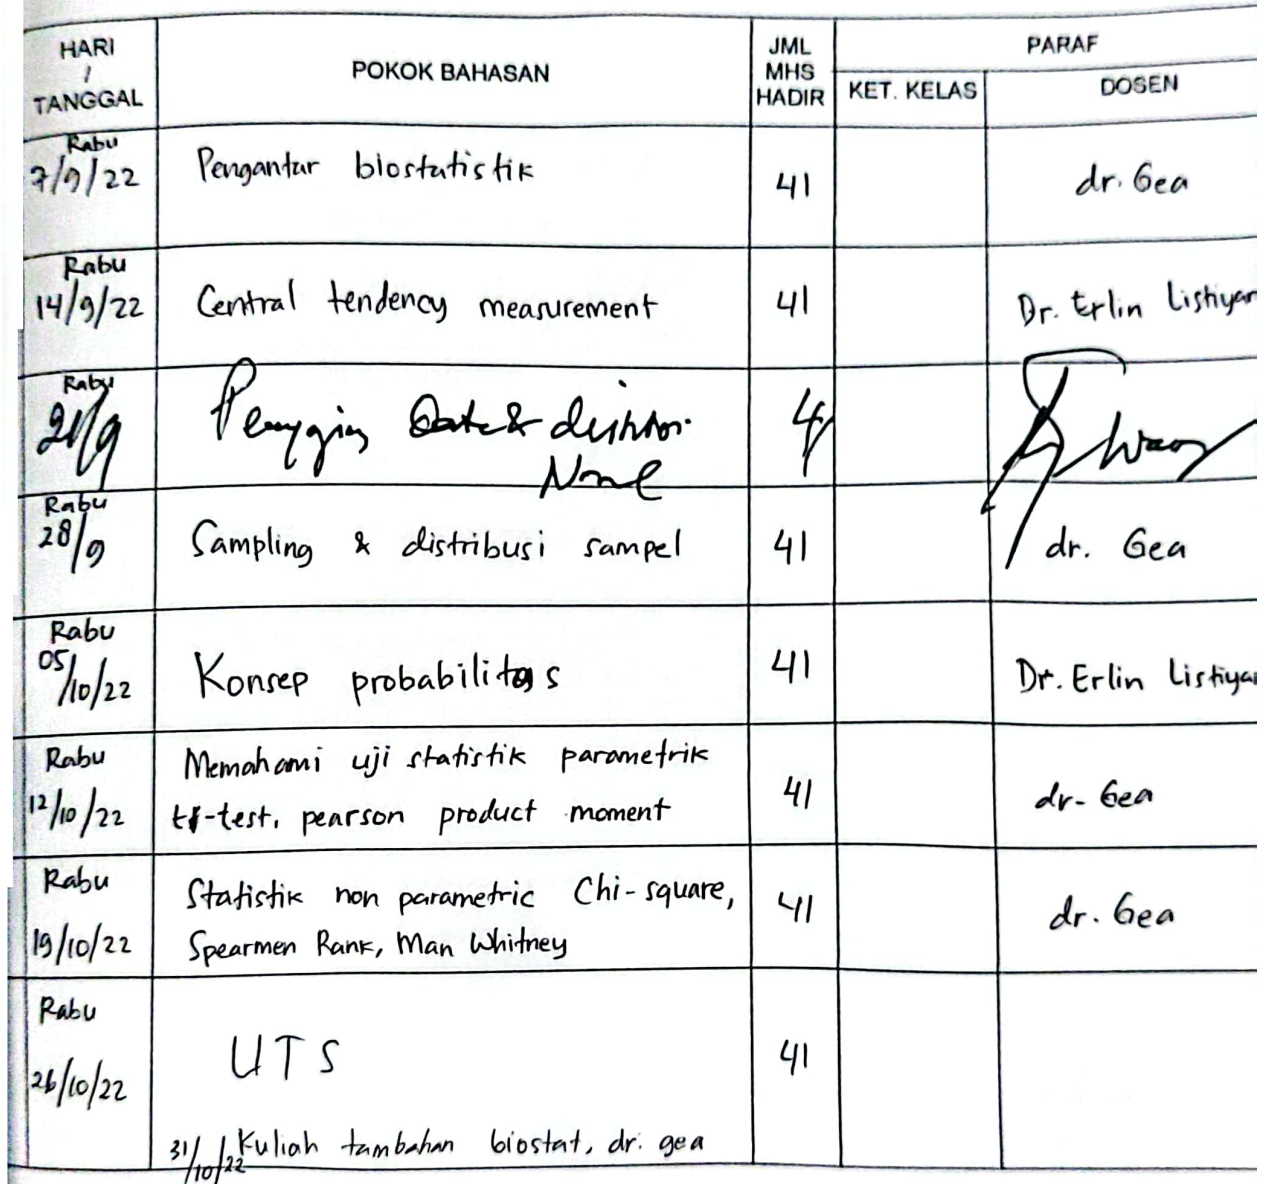 HARI
/
TANGGAL
POKOK BAHASAN
JML
MHS
HADIR
PARAF
KET. KELAS
DOSEN
Rabu
7/9/22
Pengantar biostatistik
41
dr. Gea
Rabu
14/9/22
Central tendency measurement
41
Dr. Erlin Listiyan
Rabu
21/9
Data &
Rabu
28/9
Sampling & distribusi sampel
41
dr. Gea
Rabu
05/10/22
Konsep probabilitas
41
Dr. Erlin Listiya
Rabu
12/10/22
Memahami uji statistik parametrik
t-test, pearson product moment
41
dr- Gea
Rabu
19/10/22
Statistik non parametric Chi-square,
Spearmen Rank, Man Whitney
41
dr. Gea
Rabu
26/10/22
UTS
41
31/10/22 Kuliah tambahan biostat, dr. gea